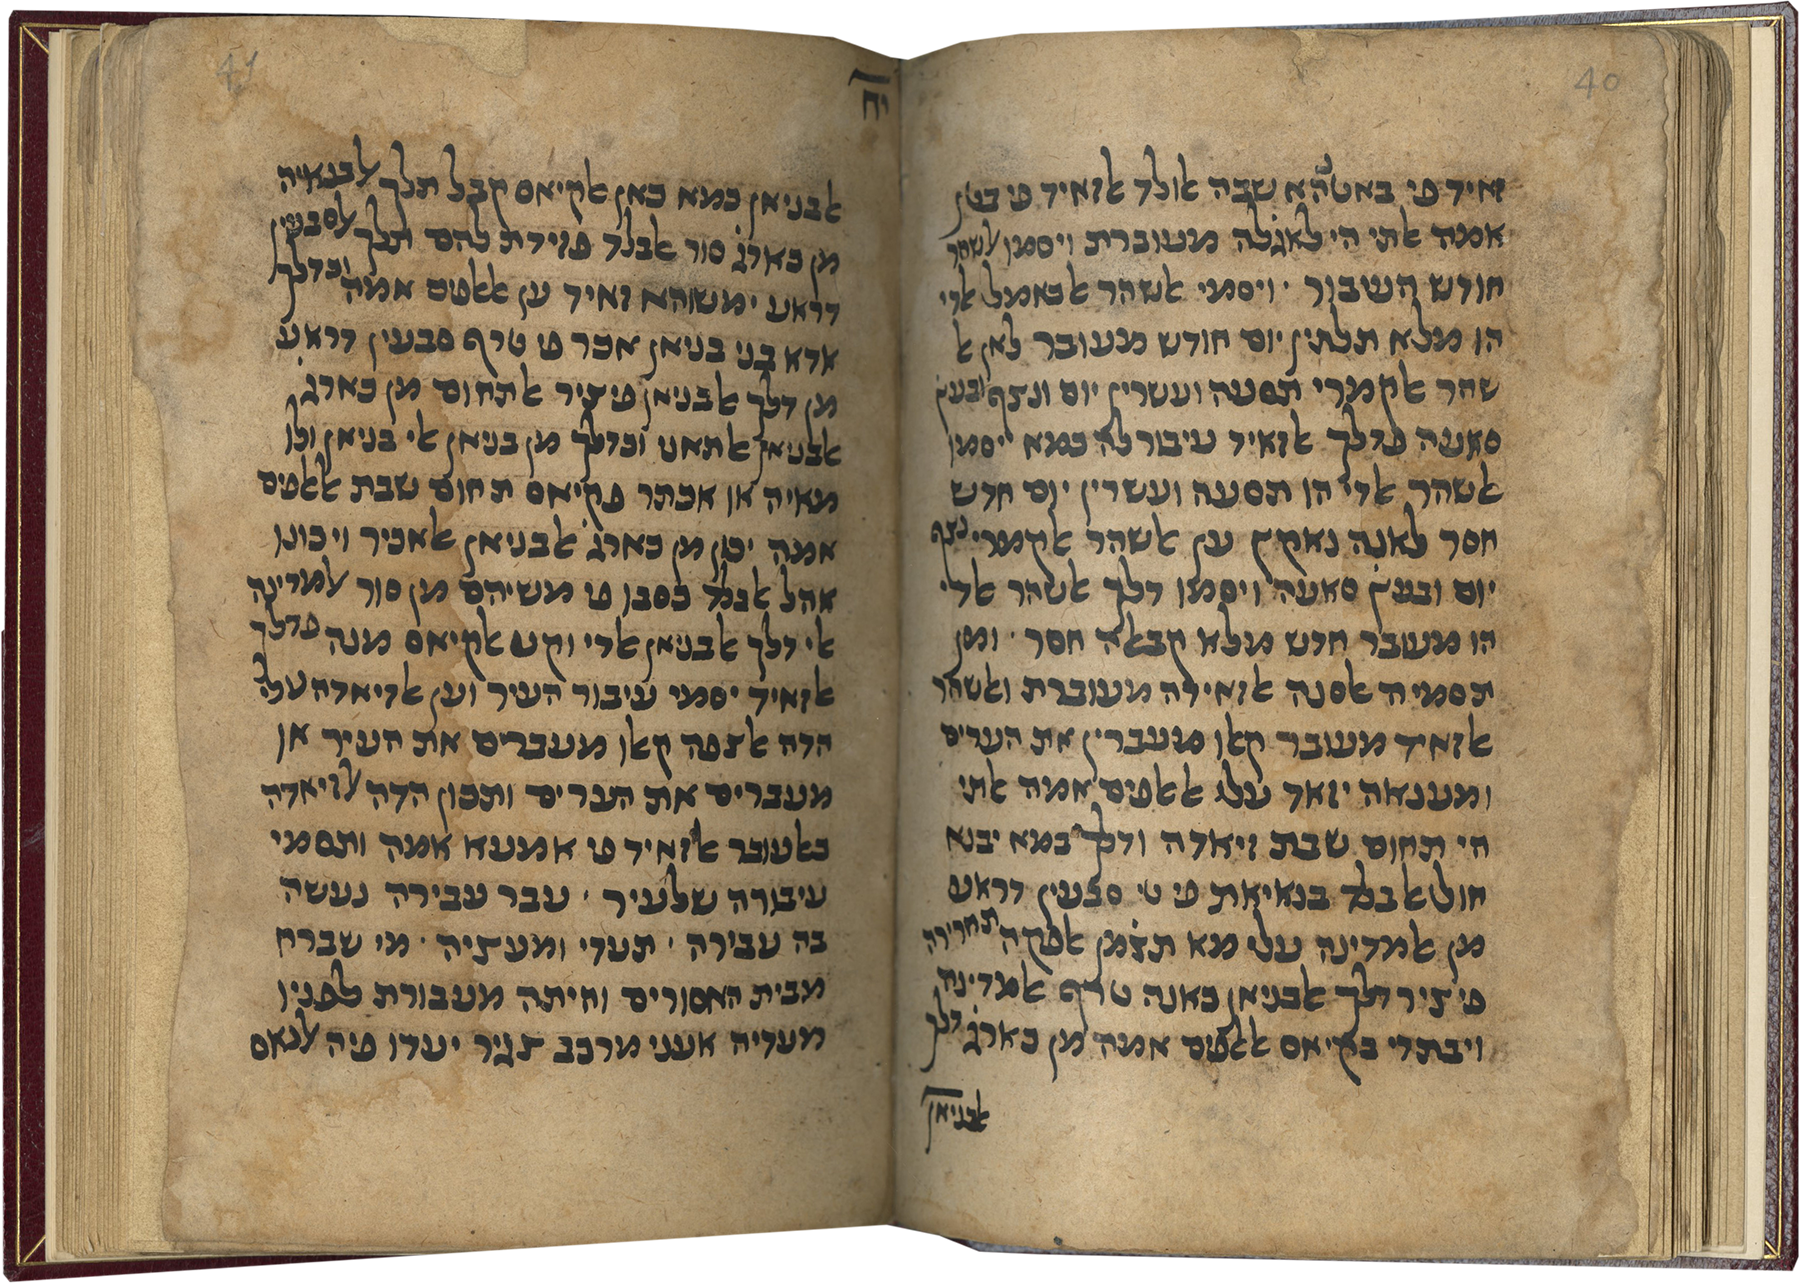 זאיד פי באטנהא שבה אולד אלזאיד פי בטן
אמה אלתי הי לאגלה מעוברת ויסמון אלשהר
חודש העיבור · ויסמי אלשהר אלכאמל אלדי
הו מלא תלתין יום חודש מעובר לאן אל
שהר אלקמרי תסעה ועשרין יום ונצף ובעץ
סאעה פדלך אלזאיד עיבור לה כמא יסמון
אלשהר אלדי הו תסעה ועשרין יום חדש
חסר לאנה נאקץ ען אלשהר אלקמרי נצף
יום ובעץ סאעה ויסמון דלך אלשהר אלדי
הו מעובר חדש מלא קבאלה חסר · ומן
תסמיה אלסנה אלזאידה מעוברת ואלשהר
אלזאיד מעובר קאלו מעברין את הערים
ומענאה יזאד עלי אלאלפים אמה אלתי
הי תחום שבת זיאדה ודלך כמא יבנא
חול אלבלד בנאיאת פי סבעין דראע
מן אלמדינה עלי מא תצמן אלפקה תחרירה
פיציר תלך אלבניאן כאנה טרף אלמדינה
ויבתדי בקיאס אלאלפים אמה מן כארג דלך
אלבניאן
40
יח
אלבניאן כמא כאן אלקיאס קבל תלך אלבנאיה
מן כארג סור אלבלד פזידת להם תלך אלסבעין
דראע ימשוהא זאיד ען אלאלפים אמה וכדלך
אדא בני בניאן אכר פי טרף סבעין דראע
מן דלך אלבניאן פיציר אלתחום מן כארג
אלבניאן אלתאני וכדלך מן בניאן אלי בניאן ולו
מאיה או אכתר פקיאס תחום שבת אלאלפים
אמה יכון מן כארג אלבניאן אלאכיר ויכונו
אהל אלבלד כסבו פי משיהם מן סור אלמדינה
אלי דלך אלבניאן אלדי וקע אלקיאס מנה פדלך
אלזאיד יסמי עיבור העיר וען אלזיאדה עלי
הדה אלצפה קאלו מעברים את העיר או
מעברים את הערים ותכון הדה אלזיאדה
כאלעובר אלזאיד פי אמעא אמה ותסמי
עיבורה שלעיר · עבר עבירה נעשה
בה עבירה · תעדי ומעציה · מי שברח
מבית האסורים והיתה מעבורת לפניו
מעדיה אעני מרכב צגיר יעדו פיה אלנאס
41